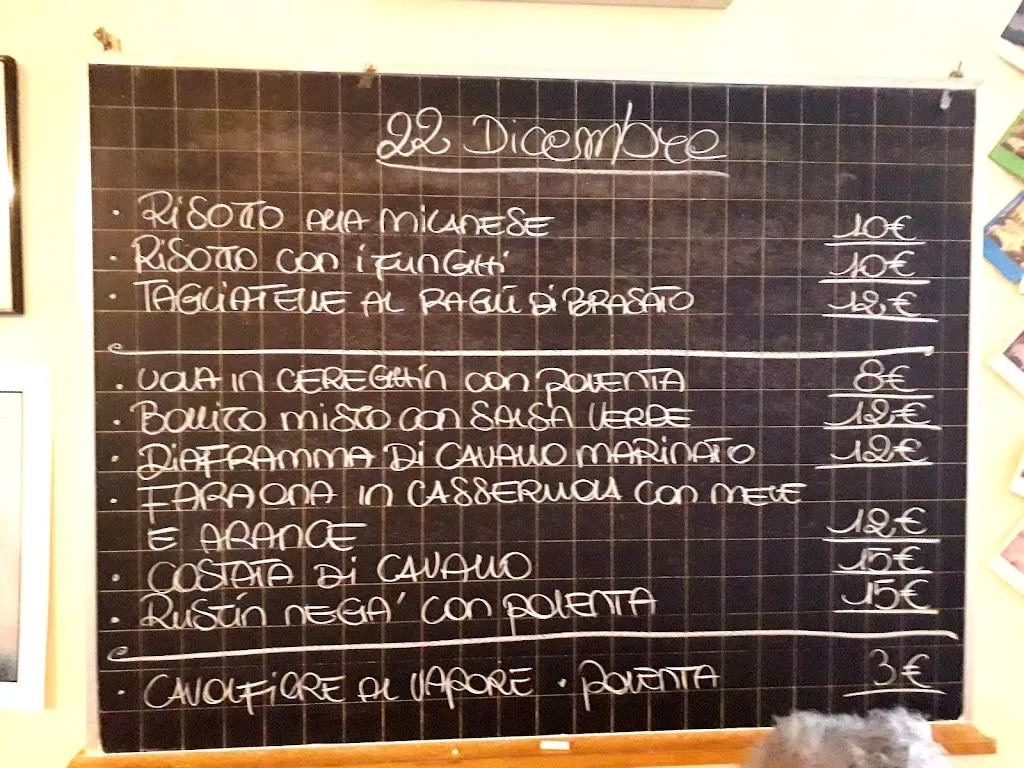 22 Dicembre
· RISOTTO ALLA MILANESE 10€
· RISOTTO CON I FUNGHI 10€
· TAGLIATELLE AL RAGÙ DI BRASATO 12€
· UOVA IN CEREGHIN CON POLENTA 8€
· BOLLITO MISTO CON SALSA VERDE 12€
· DIAFRAMMA DI CAVALLO MARINATO 12€
· FARAONA IN CASSERUOLA CON MELE
E ARANCE 12€
· COSTATA DI CAVALLO 15€
· RUSTIN NEGÀ CON POLENTA 15€
· CAVOLFIORE AL VAPORE · POLENTA 3€